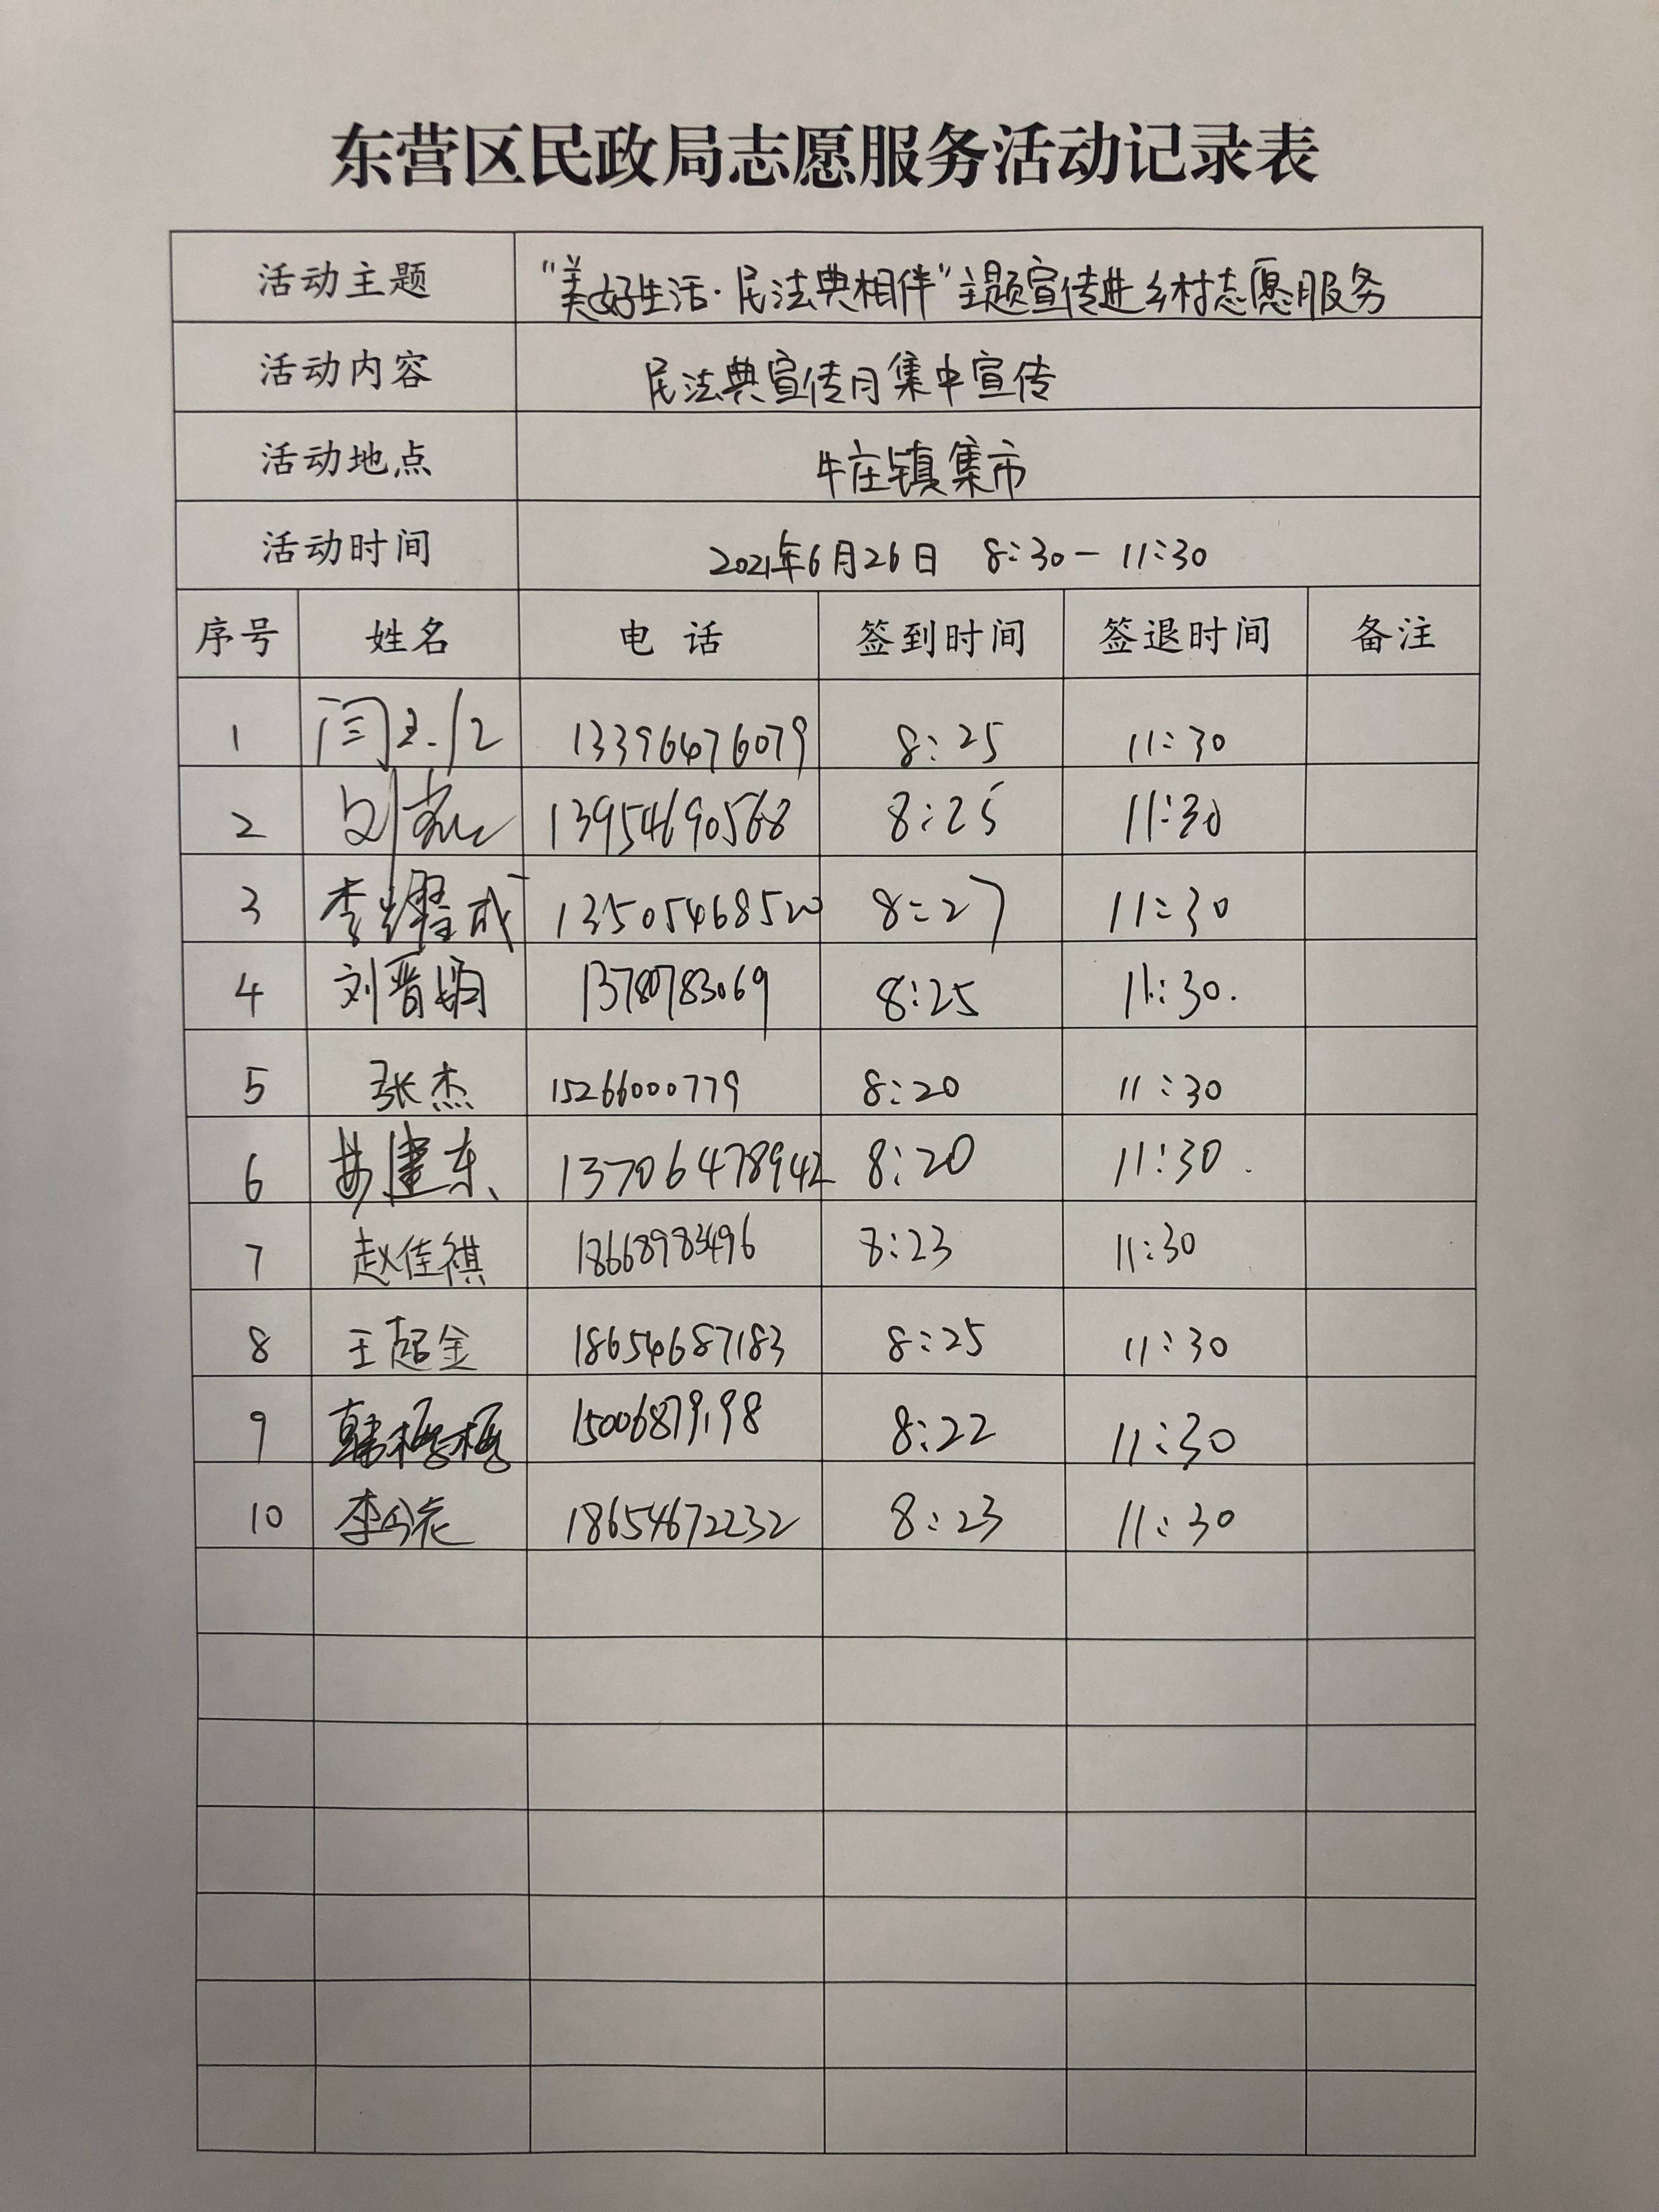 东营区民政局志愿服务活动记录表
活动主题 "美好生活·民法典相伴"主题宣传进乡村志愿服务
活动内容 民法典宣传月集中宣传
活动地点 牛庄镇集市
活动时间 2021年6月26日 8:30-11:30
序号 姓名 电话 签到时间 签退时间 备注
1 13396476079 8:25 11:30
2 刘 13954690568 8:25 11:30
3 李耀成 13505468520 8:27 11:30
4 刘晋娟 8:25 11:30.
5 张杰 15266000779 8:20 11:30
6 建东 13706478942 8:20 11:30.
7 赵佳祺 18668983496 8:23 11:30
8 王超金 18654687183 8:25 11:30
9 韩梅梅 15006879198 8:22 11:30
10 李 18654672232 8:23 11:30